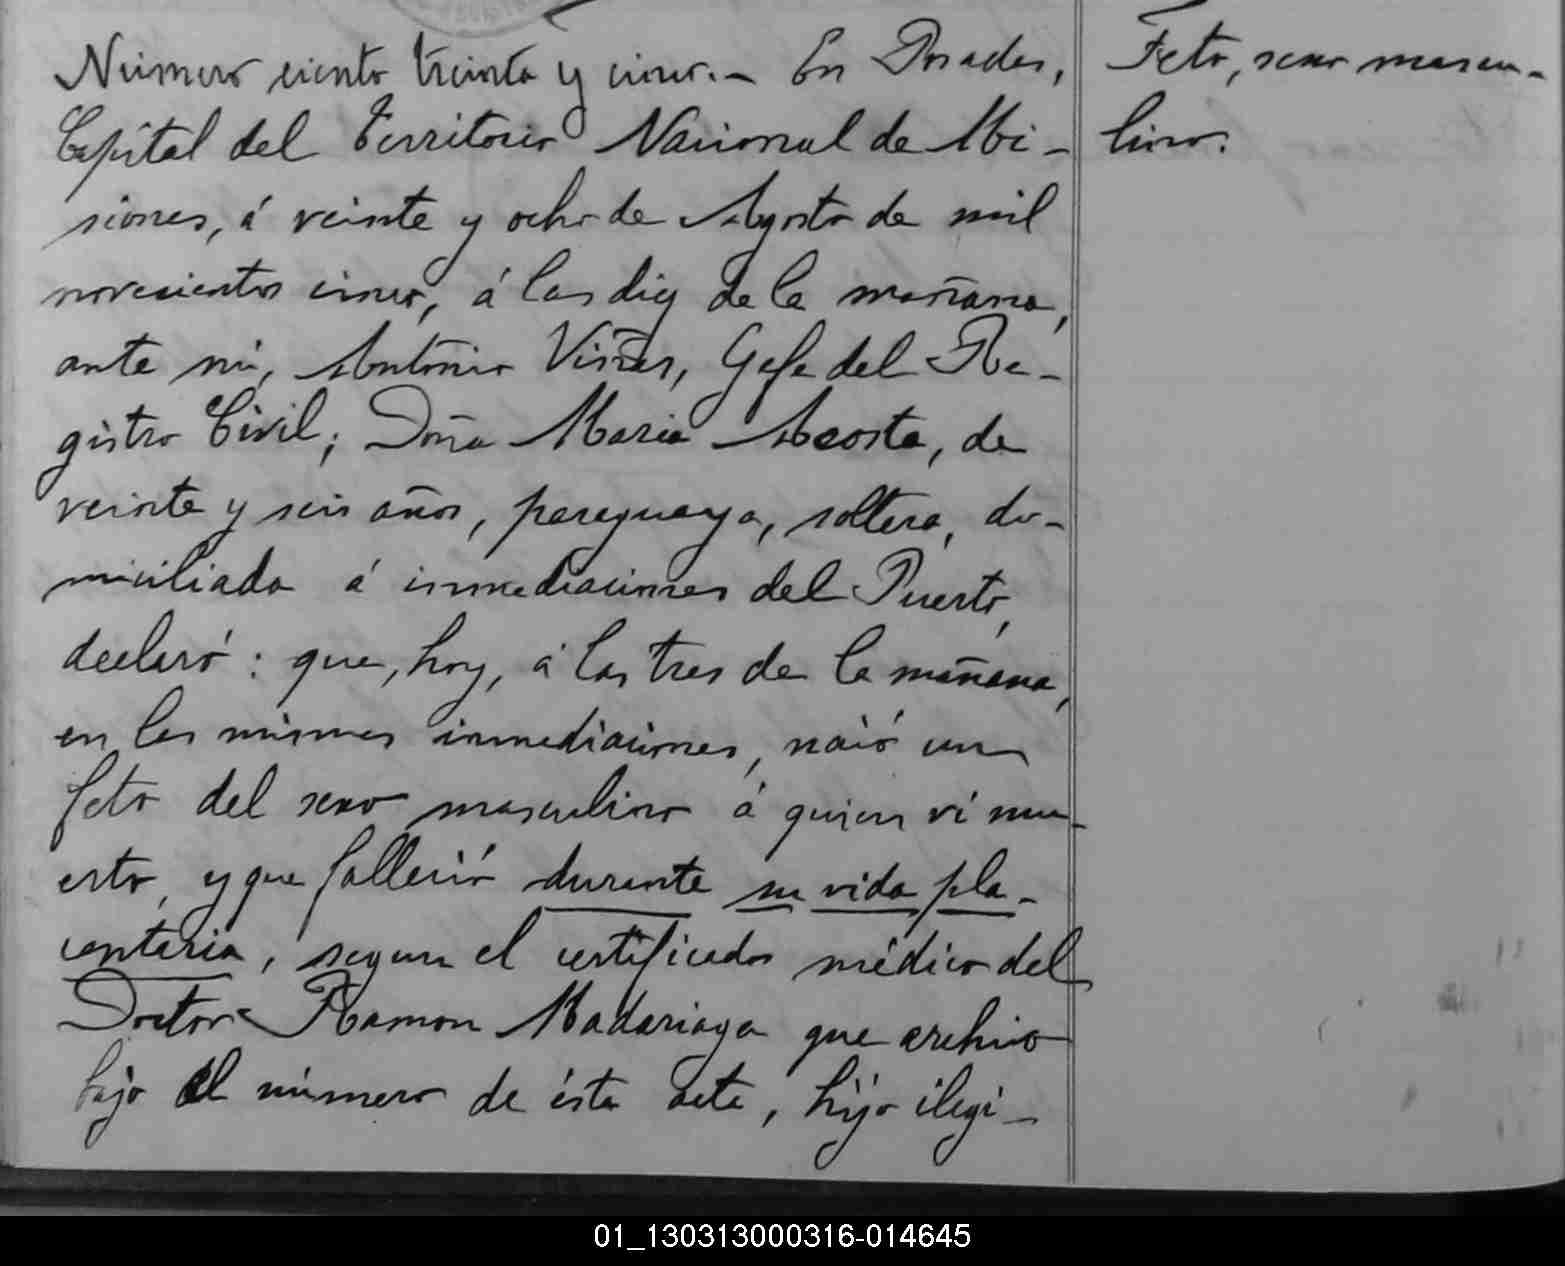 Número ciento treinta y cinco.- En Posadas,
Capital del Territorio Nacional de Mi-
siones, á veinte y ocho de Agosto de mil
novecientos cinco, á las diez de la mañana,
ante mi, Antonio Viñas, Gefe del Re-
gistro Civil; Doña Maria Acosta, de
veinte y seis años, paraguaya, soltera, do-
miciliada á inmediaciones del Puerto,
declaró: que, hoy, á las tres de la mañana,
en las mismas inmediaciones, nació un
feto del sexo masculino á quien ví mu-
erto, y que falleció durante su vida pla-
centaria, segun el certificado médico del
Doctor Ramon Madariaga que archivo
bajo el número de ésta acta, hijo ilegi-
Feto, sexo mascu-
lino.
01_130313000316-014645